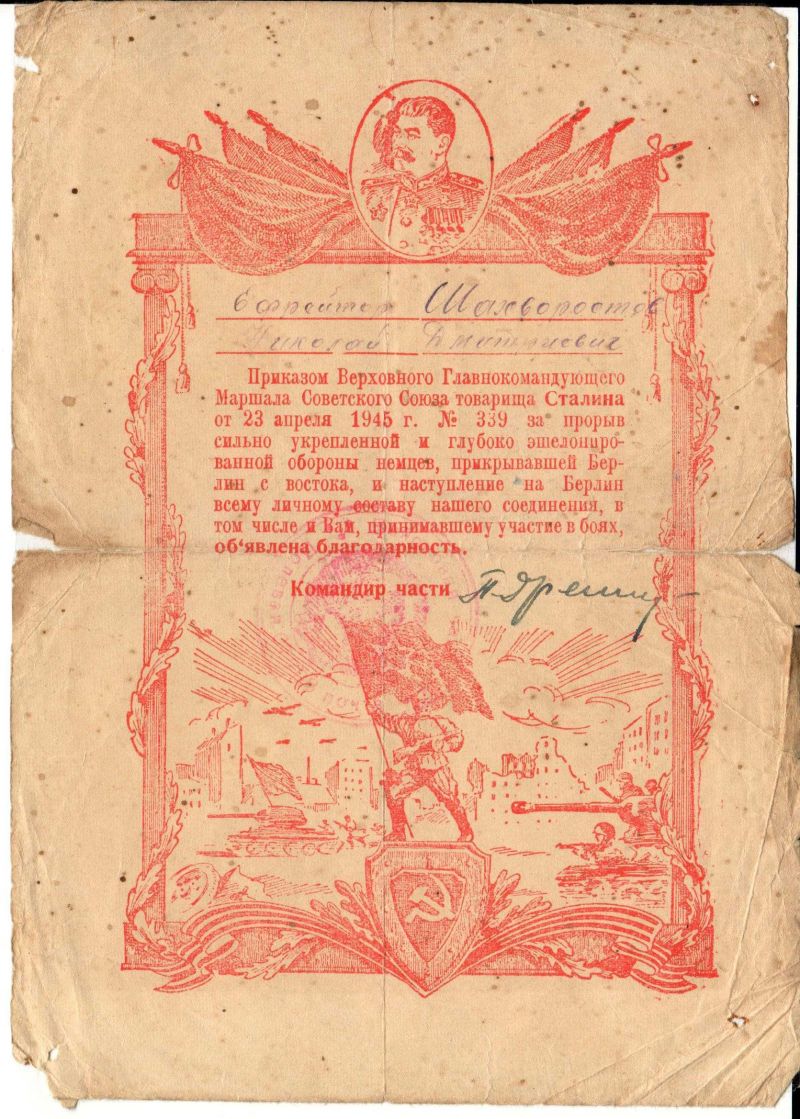 Ефрейтор Шахворостов
Николай Дмитриевич
Приказом Верховного Главнокомандующего
Маршала Советского Союза товарища Сталина
от 23 апреля 1945 г. № 339 за прорыв
сильно укрепленной и глубоко эшелониро-
ванной обороны немцев, прикрывавшей Бер-
лин с востока, и наступление на Берлин
всему личному составу нашего соединения, в
том числе и Вам, принимавшему участие в боях,
об‘явлена благодарность.
Командир части